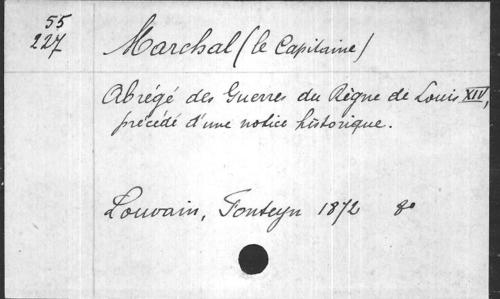 55
227
Marchal (le Capitaine)
Abrégé des Guerres du Règne de Louis XIV,
précédé d'une notice historique.
Louvain, Fonteyn 1872 8o